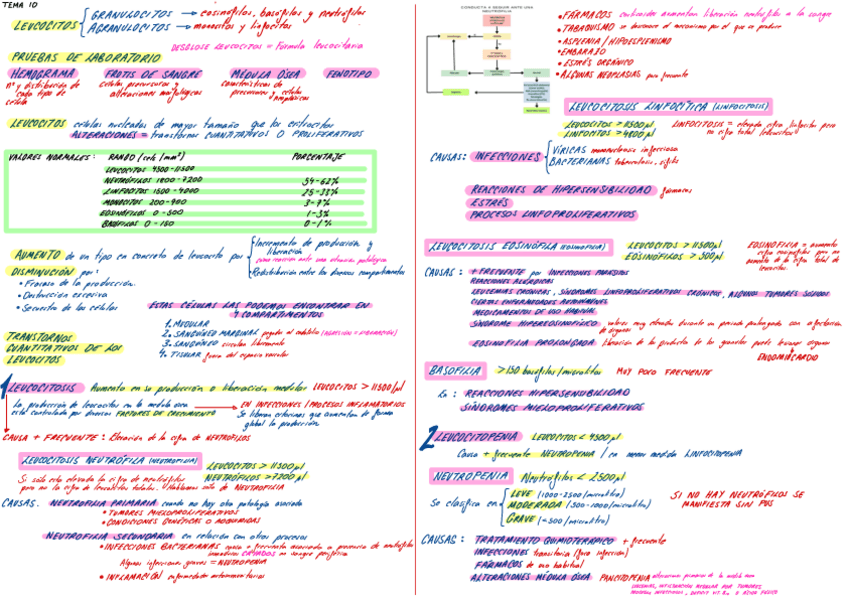 TEMA 10
LEUCOCITOS
GRANULOCITOS → eosinófilos, basófilos y neutrófilos
AGRANULOCITOS → monocitos y linfocitos
DESGLOSE LEUCOCITOS = Fórmula leucocitaria
PRUEBAS DE LABORATORIO
HEMOGRAMA
nº y distribución de cada tipo de célula
FROTIS DE SANGRE
células precursoras y alteraciones morfológicas
MÉDULA ÓSEA
características de precursores y células neoplásicas
FENOTIPO
LEUCOCITOS células nucleadas de mayor tamaño que los eritrocitos
ALTERACIONES = trastornos CUANTITATIVOS O PROLIFERATIVOS
VALORES NORMALES: RANGO (cel/mm³) PORCENTAJE
LEUCOCITOS 4500-11500
NEUTRÓFILOS 1800-7200 54-62%
LINFOCITOS 1500-4000 25-33%
MONOCITOS 200-900 3-7%
EOSINÓFILOS 0-500 1-3%
BASÓFILOS 0-150 0-1%
AUMENTO de un tipo en concreto de leucocito por
Incremento de producción y liberación
como reacción ante una situación patológica
Redistribución entre los diversos compartimentos
DISMINUCIÓN por:
• Fracaso de la producción
• Destrucción excesiva
• Secuestro de las células
ESTAS CÉLULAS LAS PODEMOS ENCONTRAR EN
4 COMPARTIMENTOS
1. MEDULAR
2. SANGUÍNEO MARGINAL pegados al endotelio
3. SANGUÍNEO circulan libremente
4. TISULAR fuera del espacio vascular
TRANSTORNOS
CUANTITATIVOS DE LOS
LEUCOCITOS
1 LEUCOCITOSIS Aumento en su producción o liberación medular LEUCOCITOS > 11500/μl
La producción de leucocitos en la médula ósea
está controlada por diversos FACTORES DE CRECIMIENTO
EN INFECCIONES / PROCESOS INFLAMATORIOS
Se liberan citocinas que aumentan de forma
global la producción
CAUSA + FRECUENTE: Elevación de la cifra de NEUTRÓFILOS
LEUCOCITOSIS NEUTRÓFILA (NEUTROFILIA)
LEUCOCITOS > 11500/μl
NEUTRÓFILOS > 7200/μl
Si sólo está elevada la cifra de neutrófilos
pero no la cifra de leucocitos totales. Hablamos solo de NEUTROFILIA
CAUSAS. NEUTROFILIA PRIMARIA cuando no hay otra patología asociada
• TUMORES MIELOPROLIFERATIVOS
• CONDICIONES GENÉTICAS O ADQUIRIDAS
NEUTROFILIA SECUNDARIA en relación con otros procesos
• INFECCIONES BACTERIANAS causa + frecuente asociada a presencia de neutrófilos
inmaduros CAYADOS en sangre periférica
Algunas infecciones graves = NEUTROPENIA
• INFLAMACIÓN enfermedades autoinmunitarias
CONDUCTA A SEGUIR ANTE UNA
NEUTROFILIA
• FÁRMACOS corticoides aumentan liberación neutrófilos a la sangre
• TABAQUISMO se desconoce el mecanismo por el que se produce
• ASPLENIA / HIPOESPLENISMO
• EMBARAZO
• ESTRÉS ORGÁNICO
• ALGUNAS NEOPLASIAS poco frecuente
LEUCOCITOSIS LINFOCÍTICA (LINFOCITOSIS)
LEUCOCITOS > 11500/μl
LINFOCITOS > 4000/μl
LINFOCITOSIS = elevada cifra linfocitos pero
no cifra total leucocitos
CAUSAS: INFECCIONES
VÍRICAS mononucleosis infecciosa
BACTERIANAS tuberculosis, sífilis
REACCIONES DE HIPERSENSIBILIDAD fármacos
ESTRÉS
PROCESOS LINFOPROLIFERATIVOS
LEUCOCITOSIS EOSINÓFILA (EOSINOFILIA)
LEUCOCITOS > 11500/μl
EOSINÓFILOS > 500/μl
EOSINOFILIA = aumento
cifra eosinófilos pero no
aumento de la cifra total de
leucocitos
CAUSAS: + FRECUENTE por INFECCIONES PARÁSITOS
REACCIONES ALÉRGICAS
LEUCEMIAS CRÓNICAS, SÍNDROMES LINFOPROLIFERATIVOS CRÓNICOS, ALGUNOS TUMORES SÓLIDOS
CIERTAS ENFERMEDADES AUTOINMUNES
MEDICAMENTOS DE USO HABITUAL
SÍNDROME HIPEREOSINOFÍLICO valores muy elevados durante un periodo prolongado con afectación
de órganos
EOSINOFILIA PROLONGADA liberación de los productos de los granulos puede lesionar órganos
ENDOMIOCARDIO
BASOFILIA > 150 basófilos/microlitro MUY POCO FRECUENTE
REACCIONES HIPERSENSIBILIDAD
SÍNDROMES MIELOPROLIFERATIVOS
2 LEUCOCITOPENIA LEUCOCITOS < 4500/μl
Causa + frecuente NEUTROPENIA / en menor medida LINFOCITOPENIA
NEUTROPENIA Neutrófilos < 2500/μl
Se clasifica en
LEVE (1000-2500/microlitro)
MODERADA (500-1000/microlitro)
GRAVE (<500/microlitro)
SI NO HAY NEUTRÓFILOS SE
MANIFIESTA SIN PUS
CAUSAS: TRATAMIENTO QUIMIOTERÁPICO + frecuente
INFECCIONES transitoria
FÁRMACOS de uso habitual
ALTERACIONES MÉDULA ÓSEA PANCITOPENIA alteraciones primarias de la médula ósea